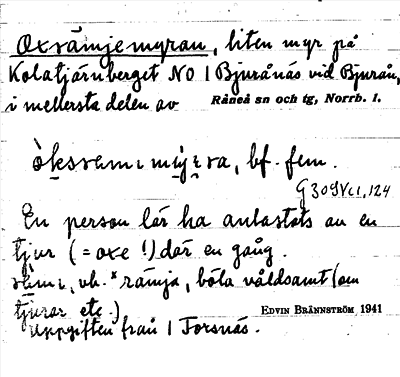 Oxrämjemyran, liten myr på
Kolatjärnberget NO I Bjurånäs vid Bjurån,
i mellersta delen av Råneå sn och tg, Norrb. l.
bf. fem.
G 309VCI, 124
En person lär ha anlastats av en
tjur (=oxe!) där en gång.
vb. *rämja, böla våldsamt (om
tjurar etc.) EDVIN BRÄNNSTRÖM 1941
Uppgiften från I Torsnäs.